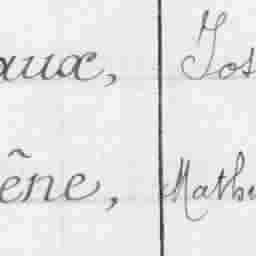 aux, Jos
êne, Mathu